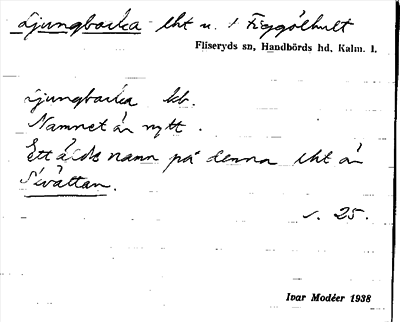 Ljungbacka lht u. t Figgölhult
Fliseryds sn, Handbörds hd, Kalm. l.
Ljungbacka kb.
Namnet är nytt.
Ett äldre namn på denna lht är
Sivättan.
s. 25.
Ivar Modéer 1938